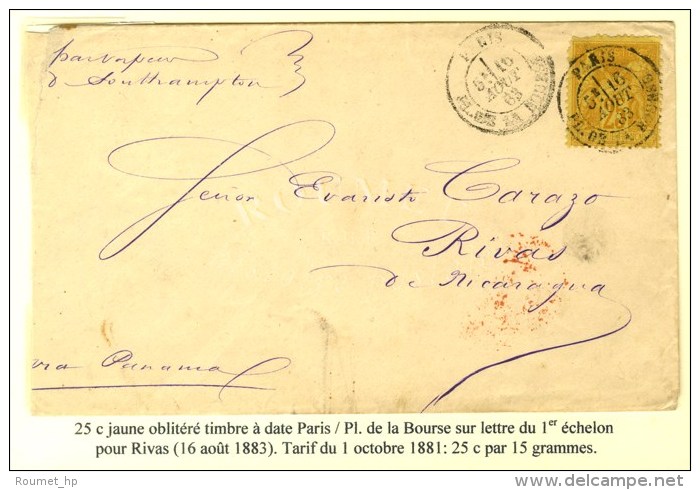 par vapeur
de Southampton
PARIS
5E 16
AOUT
83
PL. DE LA BOURSE
PARIS
5E 16
AOUT
83
PL. DE LA BOURSE
Señor Evaristo Carazo
Rivas
de Nicaragua
via Panama
25 c jaune oblitéré timbre à date Paris / Pl. de la Bourse sur lettre du 1er échelon
pour Rivas (16 août 1883). Tarif du 1 octobre 1881: 25 c par 15 grammes.
Roumet_hp
delcampe.net